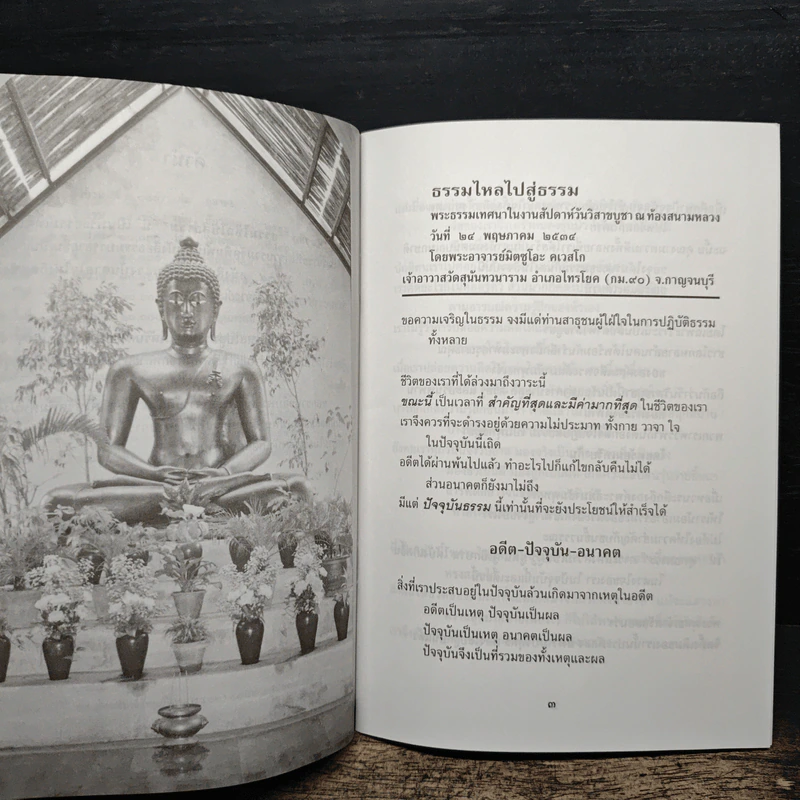 ธรรมไหลไปสู่ธรรม
พระธรรมเทศนาในงานสัปดาห์วันวิสาขบูชา ณ ท้องสนามหลวง
วันที่ ๒๔ พฤษภาคม ๒๕๓๔
โดยพระอาจารย์มิตซูโอะ คเวสโก
เจ้าอาวาสวัดสุนันทวนาราม อำเภอไทรโยค (กม.๙๐) จ.กาญจนบุรี
ขอความเจริญในธรรม จงมีแด่ท่านสาธุชนผู้ใฝ่ใจในการปฏิบัติธรรม
ทั้งหลาย
ชีวิตของเราที่ได้ล่วงมาถึงวาระนี้
ขณะนี้ เป็นเวลาที่ สำคัญที่สุดและมีค่ามากที่สุด ในชีวิตของเรา
เราจึงควรที่จะดำรงอยู่ด้วยความไม่ประมาท ทั้งกาย วาจา ใจ
ในปัจจุบันนี้เถิด
อดีตได้ผ่านพ้นไปแล้ว ทำอะไรไปก็แก้ไขกลับคืนไม่ได้
ส่วนอนาคตก็ยังมาไม่ถึง
มีแต่ ปัจจุบันธรรม นี้เท่านั้นที่จะยังประโยชน์ให้สำเร็จได้
อดีต-ปัจจุบัน-อนาคต
สิ่งที่เราประสบอยู่ในปัจจุบันล้วนเกิดมาจากเหตุในอดีต
อดีตเป็นเหตุ ปัจจุบันเป็นผล
ปัจจุบันเป็นเหตุ อนาคตเป็นผล
ปัจจุบันจึงเป็นที่รวมของทั้งเหตุและผล
๓